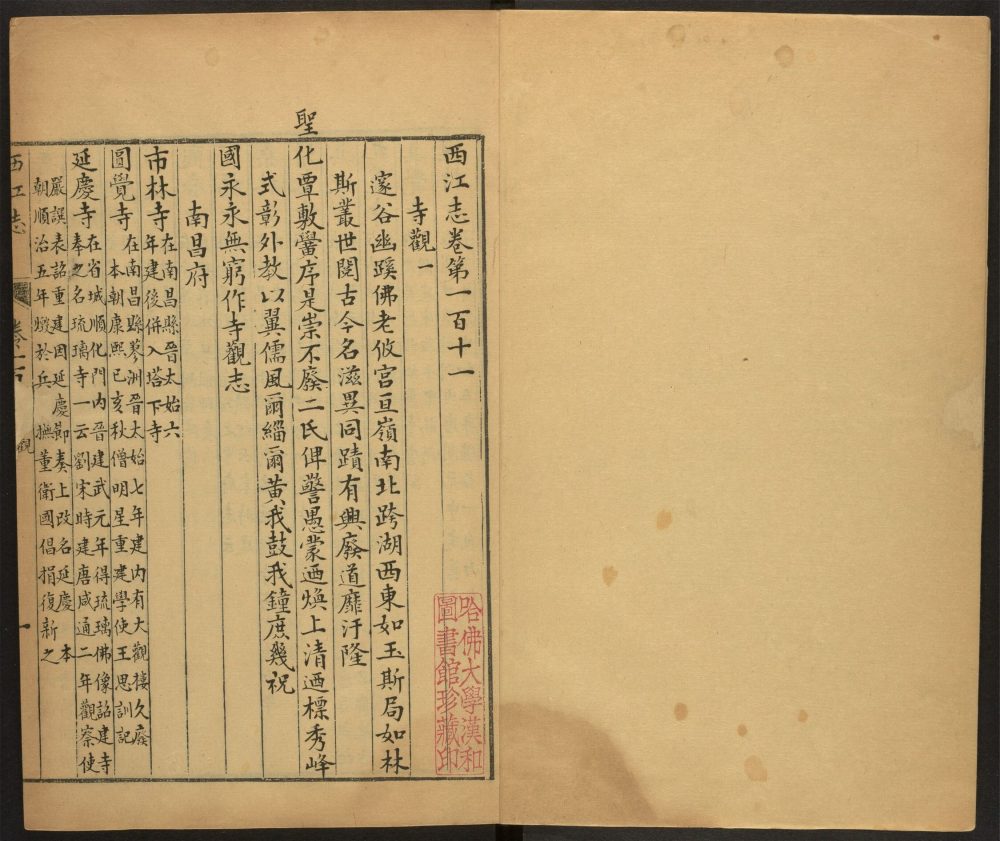 西江志卷第一百十一
寺觀一
邃谷幽蹊佛老攸宮亘嶺南北跨湖西東如玉斯局如林
斯叢世閱古今名滋異同蹟有興廢道靡汙隆
聖
化覃敷黌序是崇不廢二氏俾警愚蒙迺煥上清迺標秀峰
式彰外教以翼儒風爾緇爾黃我鼓我鐘庶幾祝
國永永無窮作寺觀志
南昌府
市林寺在南昌縣晉太始六
年建後併入塔下寺
圓覺寺在南昌縣蓼洲晉太始七年建内有大觀樓久廢
本朝康熙己亥秋僧明星重建學使王思訓記
延慶寺在省城順化門内晉建武元年得琉璃佛像詔建寺
奉之名琉璃寺一云劉宋時建唐咸通二年觀察使
嚴譔表詔重建因延慶節奏上改名延慶本
朝順治五年燬於兵撫董衛國倡捐復新之
西江志
觀
一
哈佛大學漢和
圖書館珍藏印